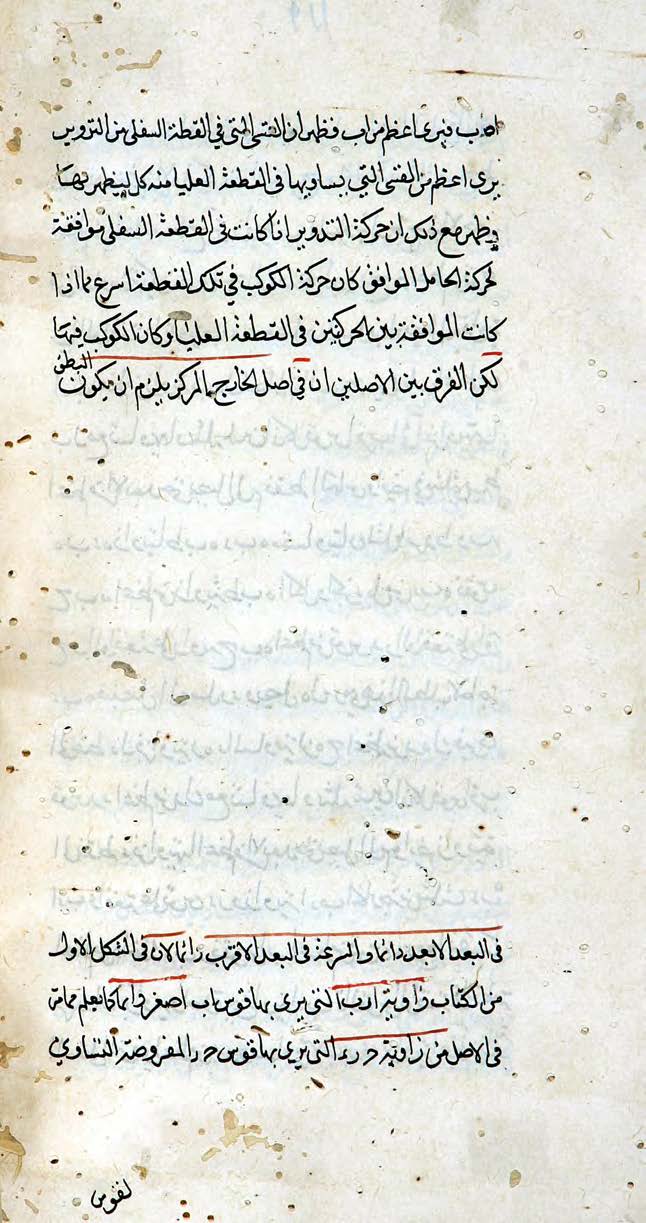 اه ب فيرى اعظم من اب فظهر ان القسى التى في القطعة السفلى من التدوير
يرى اعظم من القسى التي يساويها فى القطعة العليا منه كل ليظهر بها
وظهر مع ذلك ان حركة التدوير اذا كانت فى القطعة السفلى موافقة
لحركة الحامل الموافق كان حركة الكوكب في تلك القطعة اسرع مما اذا
كانت الموافقة بين الحركتين فى القطعة العليا وكان الكوكب فيها
لكن الفرق بين الاصلين ان فى اصل الخارج المركز يلزم ان يكون البطئ
فى البعد الابعد دائما والسرعة فى البعد الاقرب دائما لان فى الشكل الاول
من الكتاب زاوية ا ر ب التى يرى بها قوس اب اصغر دائما كما يعلم مما مر
فى الاصل من زاوية ح ر د التى يرى بها قوس ح د المفروضة التساوى
لقوس